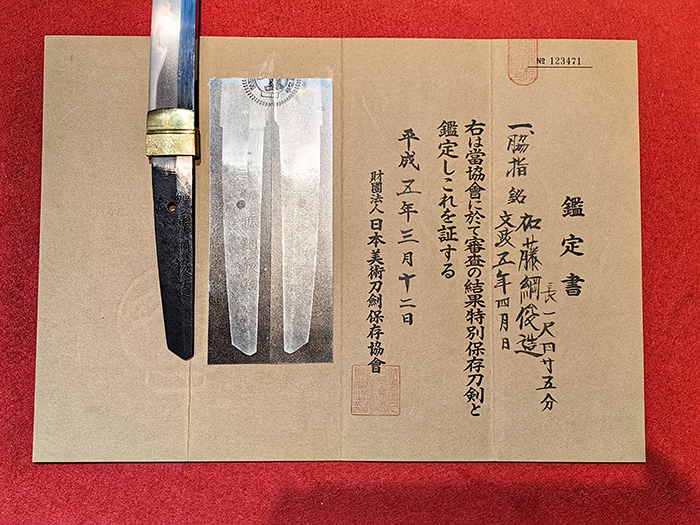 № 123471
鑑定書
一、脇指 銘 加藤綱俊造
文政五年四月日
長一尺四寸五分
右は當協會に於て審査の結果特別保存刀剣と
鑑定しこれを証する
平成五年三月十二日
財團法人日本美術刀劍保存協會